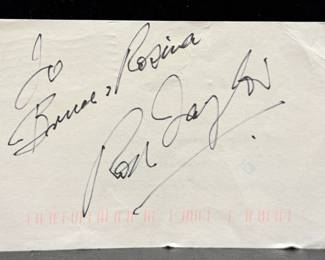 To
Bruce & Rosina
Rod Taylor